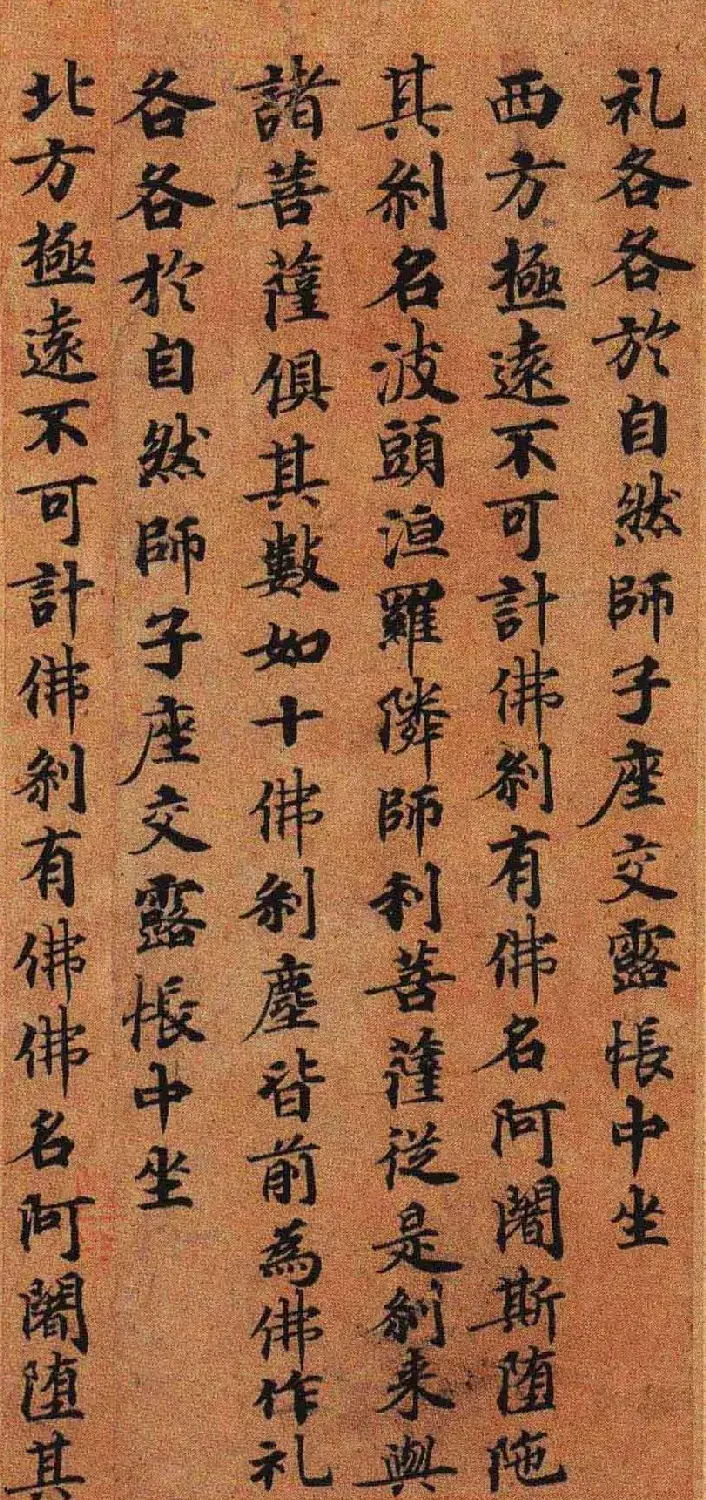 礼各各於自然師子座交露帳中坐
西方極遠不可計佛刹有佛名阿闍斯堕陁
其刹名波頭洹羅隣師利菩薩從是刹来與
諸菩薩俱其數如十佛刹塵皆前為佛作礼
各各於自然師子座交露帳中坐
北方極遠不可計佛刹有佛佛名阿闍堕其